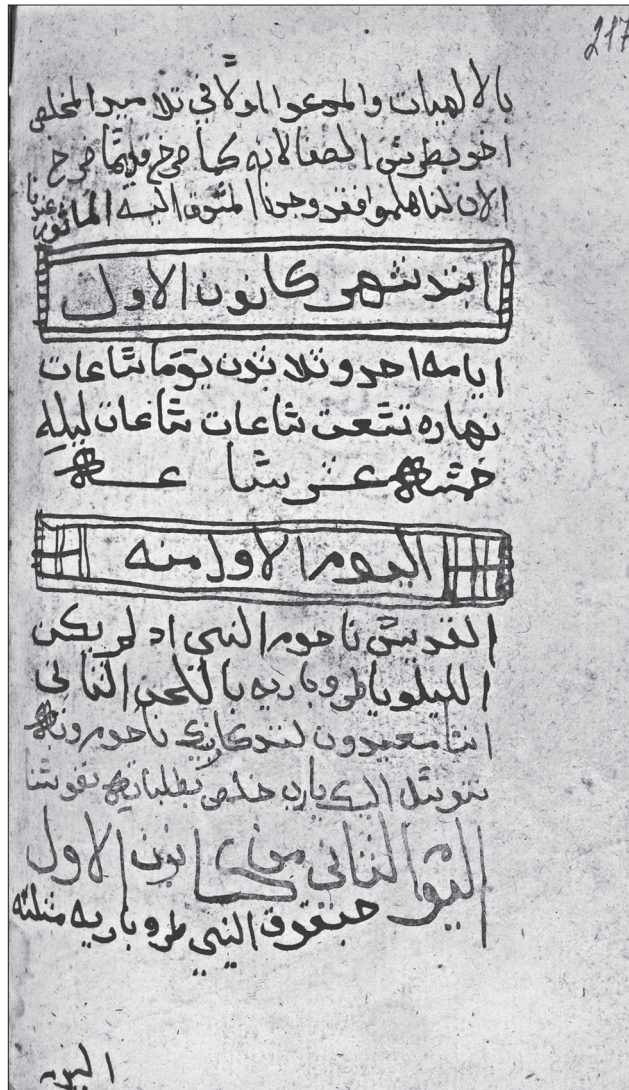 217
بالالهيات والمدعوا اولا في تلاميد المخلص
اخو بطرس الصفا لانه كما صرخ قديمًا صرخ
الان لنا هلموا فقد وجدنا المشرق
ابتد شهر كانون الاول
ايامه احد وتلاتون يومًا ساعات
نهاره تسعت ساعات ساعات ليله
خمسه عشر ساعه
اليوم الاول منه
القديس ناحوم النبي اد لم يكن
الليلويا طروباريه باللحن التاني
اننا معيدون لتدكار نبيك ناحوم وبه
نتوسل اليك يارب خلص بطلباته نفوسنا
اليوم التاني من كانون الاول
حبقوق النبي طروباريه متله
اليوم